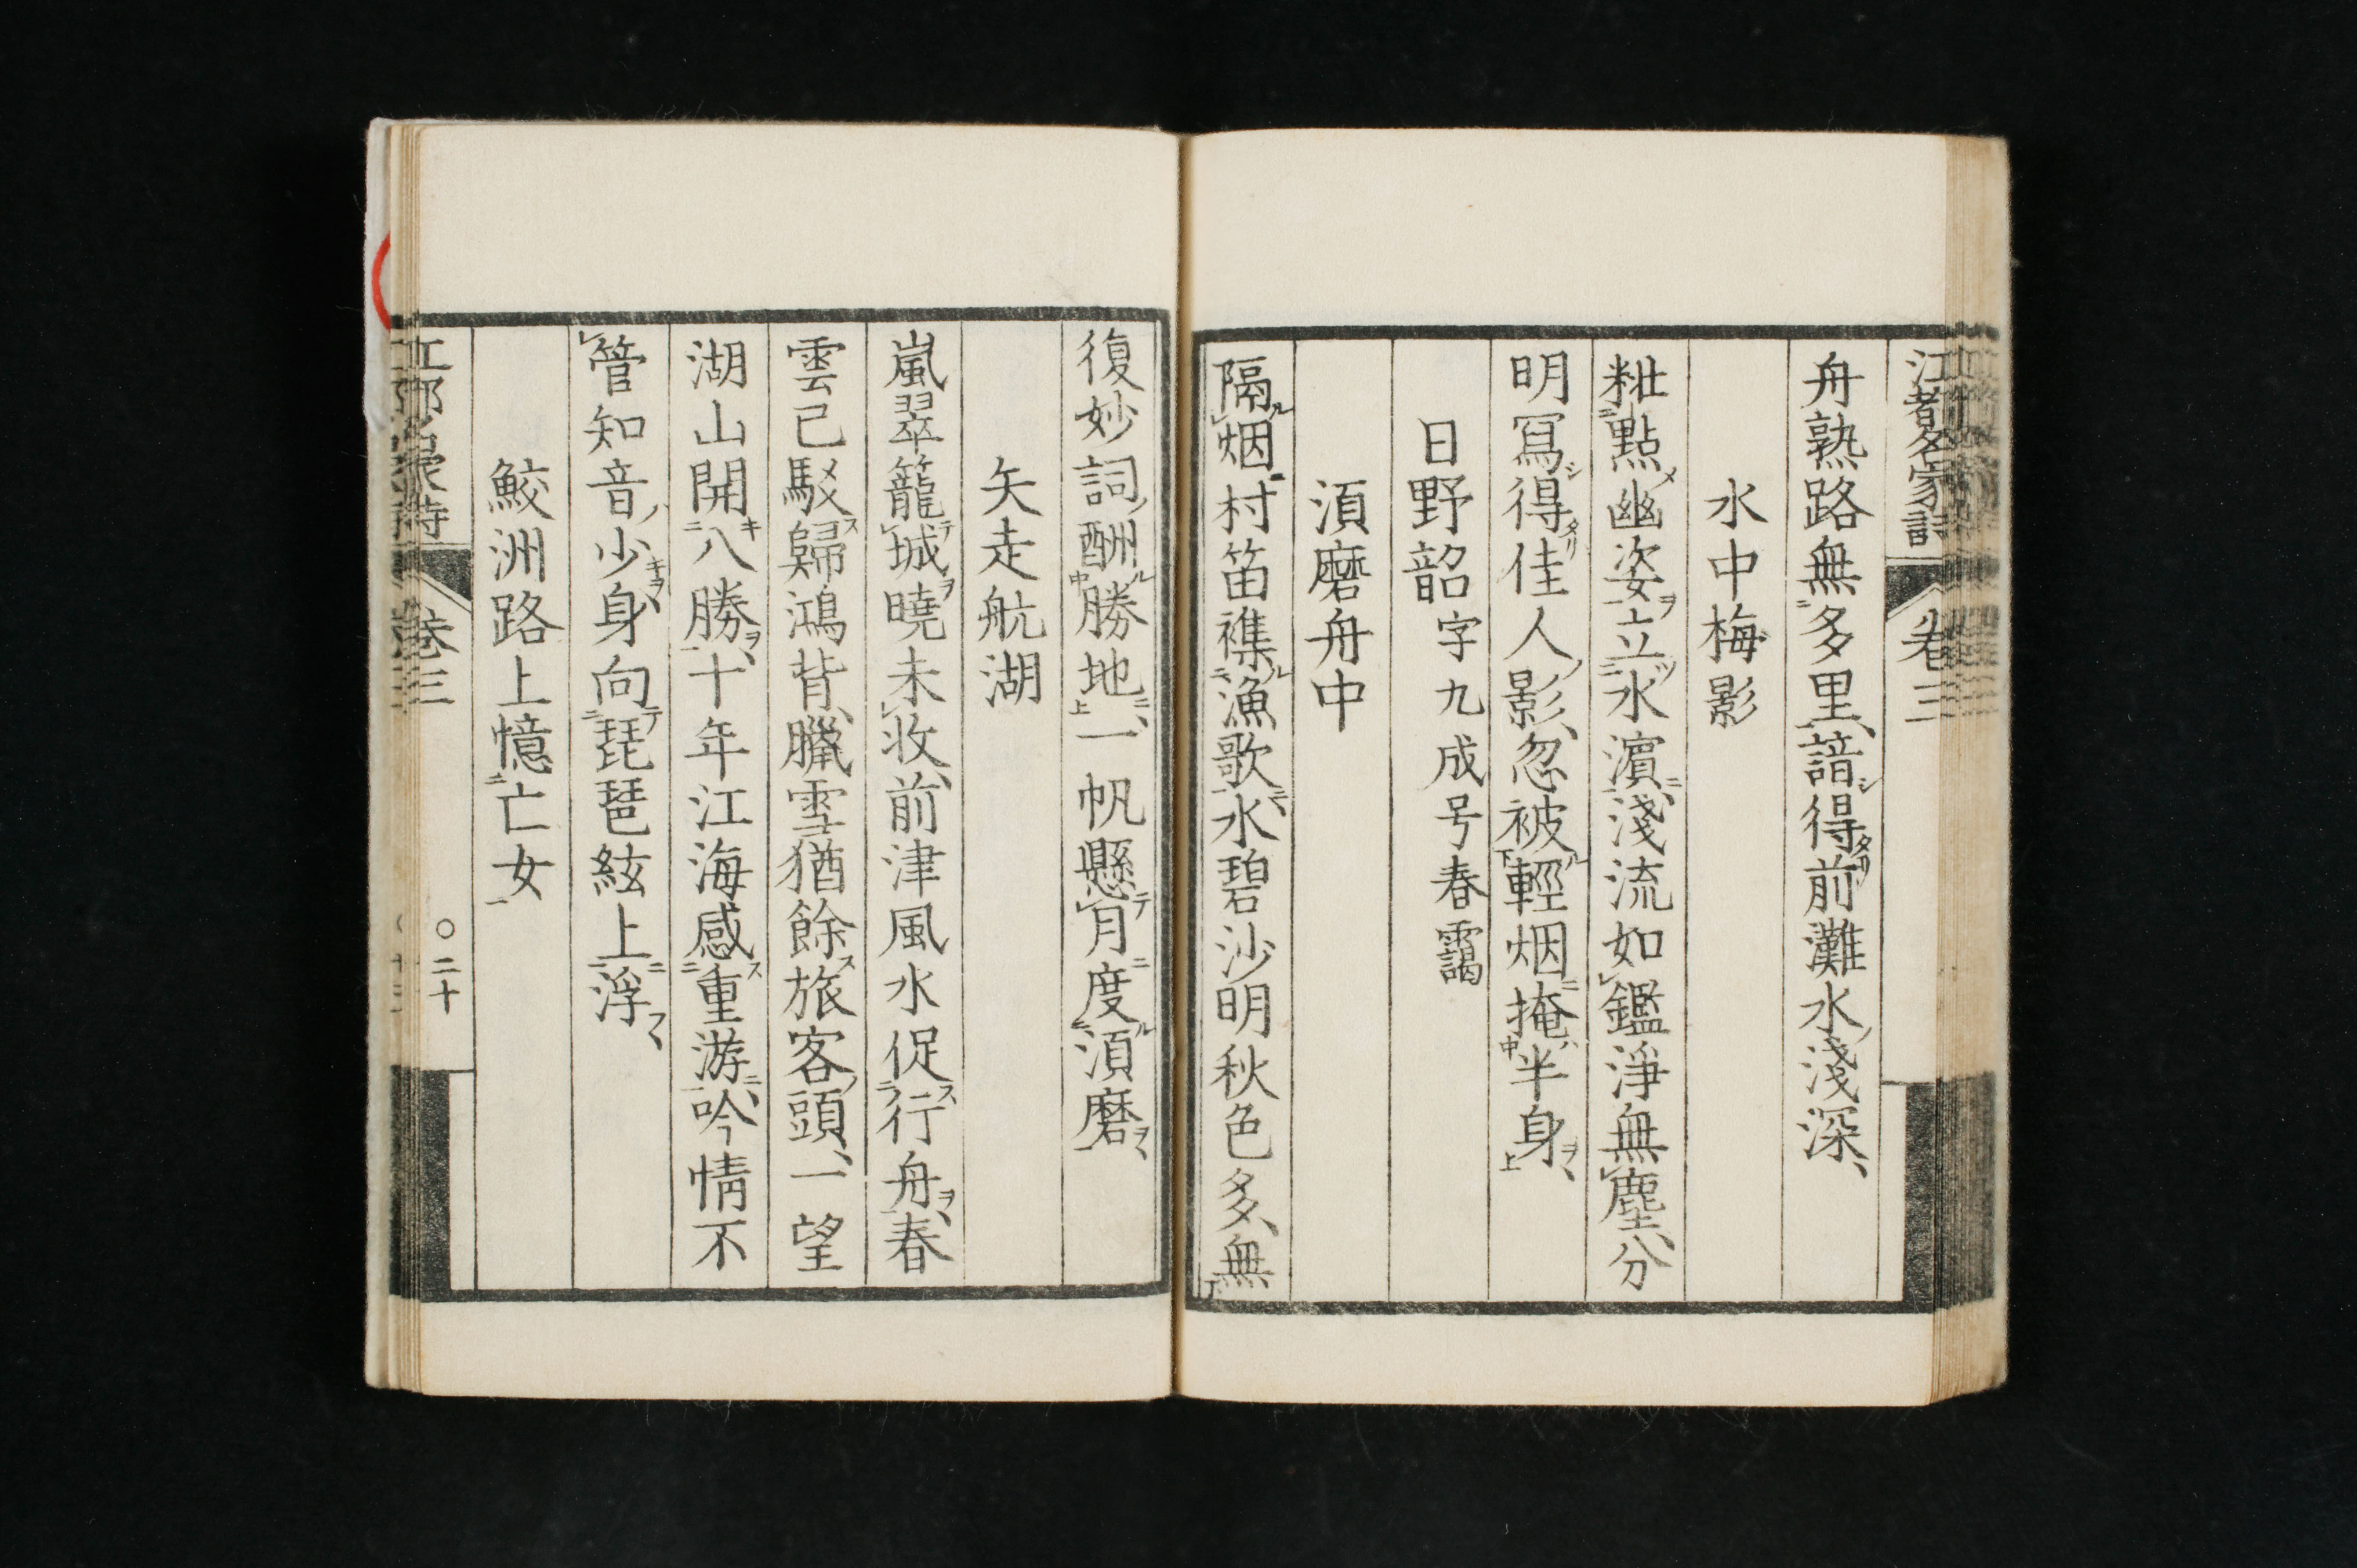 江都名家詩 卷三
舟熟路無多里、諳得前灘水淺深、
水中梅影
粧點幽姿立水濵、淺流如鑑淨無塵、分
明冩得佳人影、忽被輕烟掩半身、
日野韶字九成号春靄
湏磨舟中
隔烟村笛襍漁歌、水碧沙明秋色多、無
復妙詞酬勝地、一帆懸月度湏磨、
矢走航湖
嵐翠籠城曉未收、前津風水促行舟、春
雲已駁歸鴻背、臘雪猶餘旅客頭、一望
湖山開八勝、十年江海感重游、吟情不
管知音少、身向琵琶絃上浮、
鮫洲路上憶亡女
卷三 〇二十